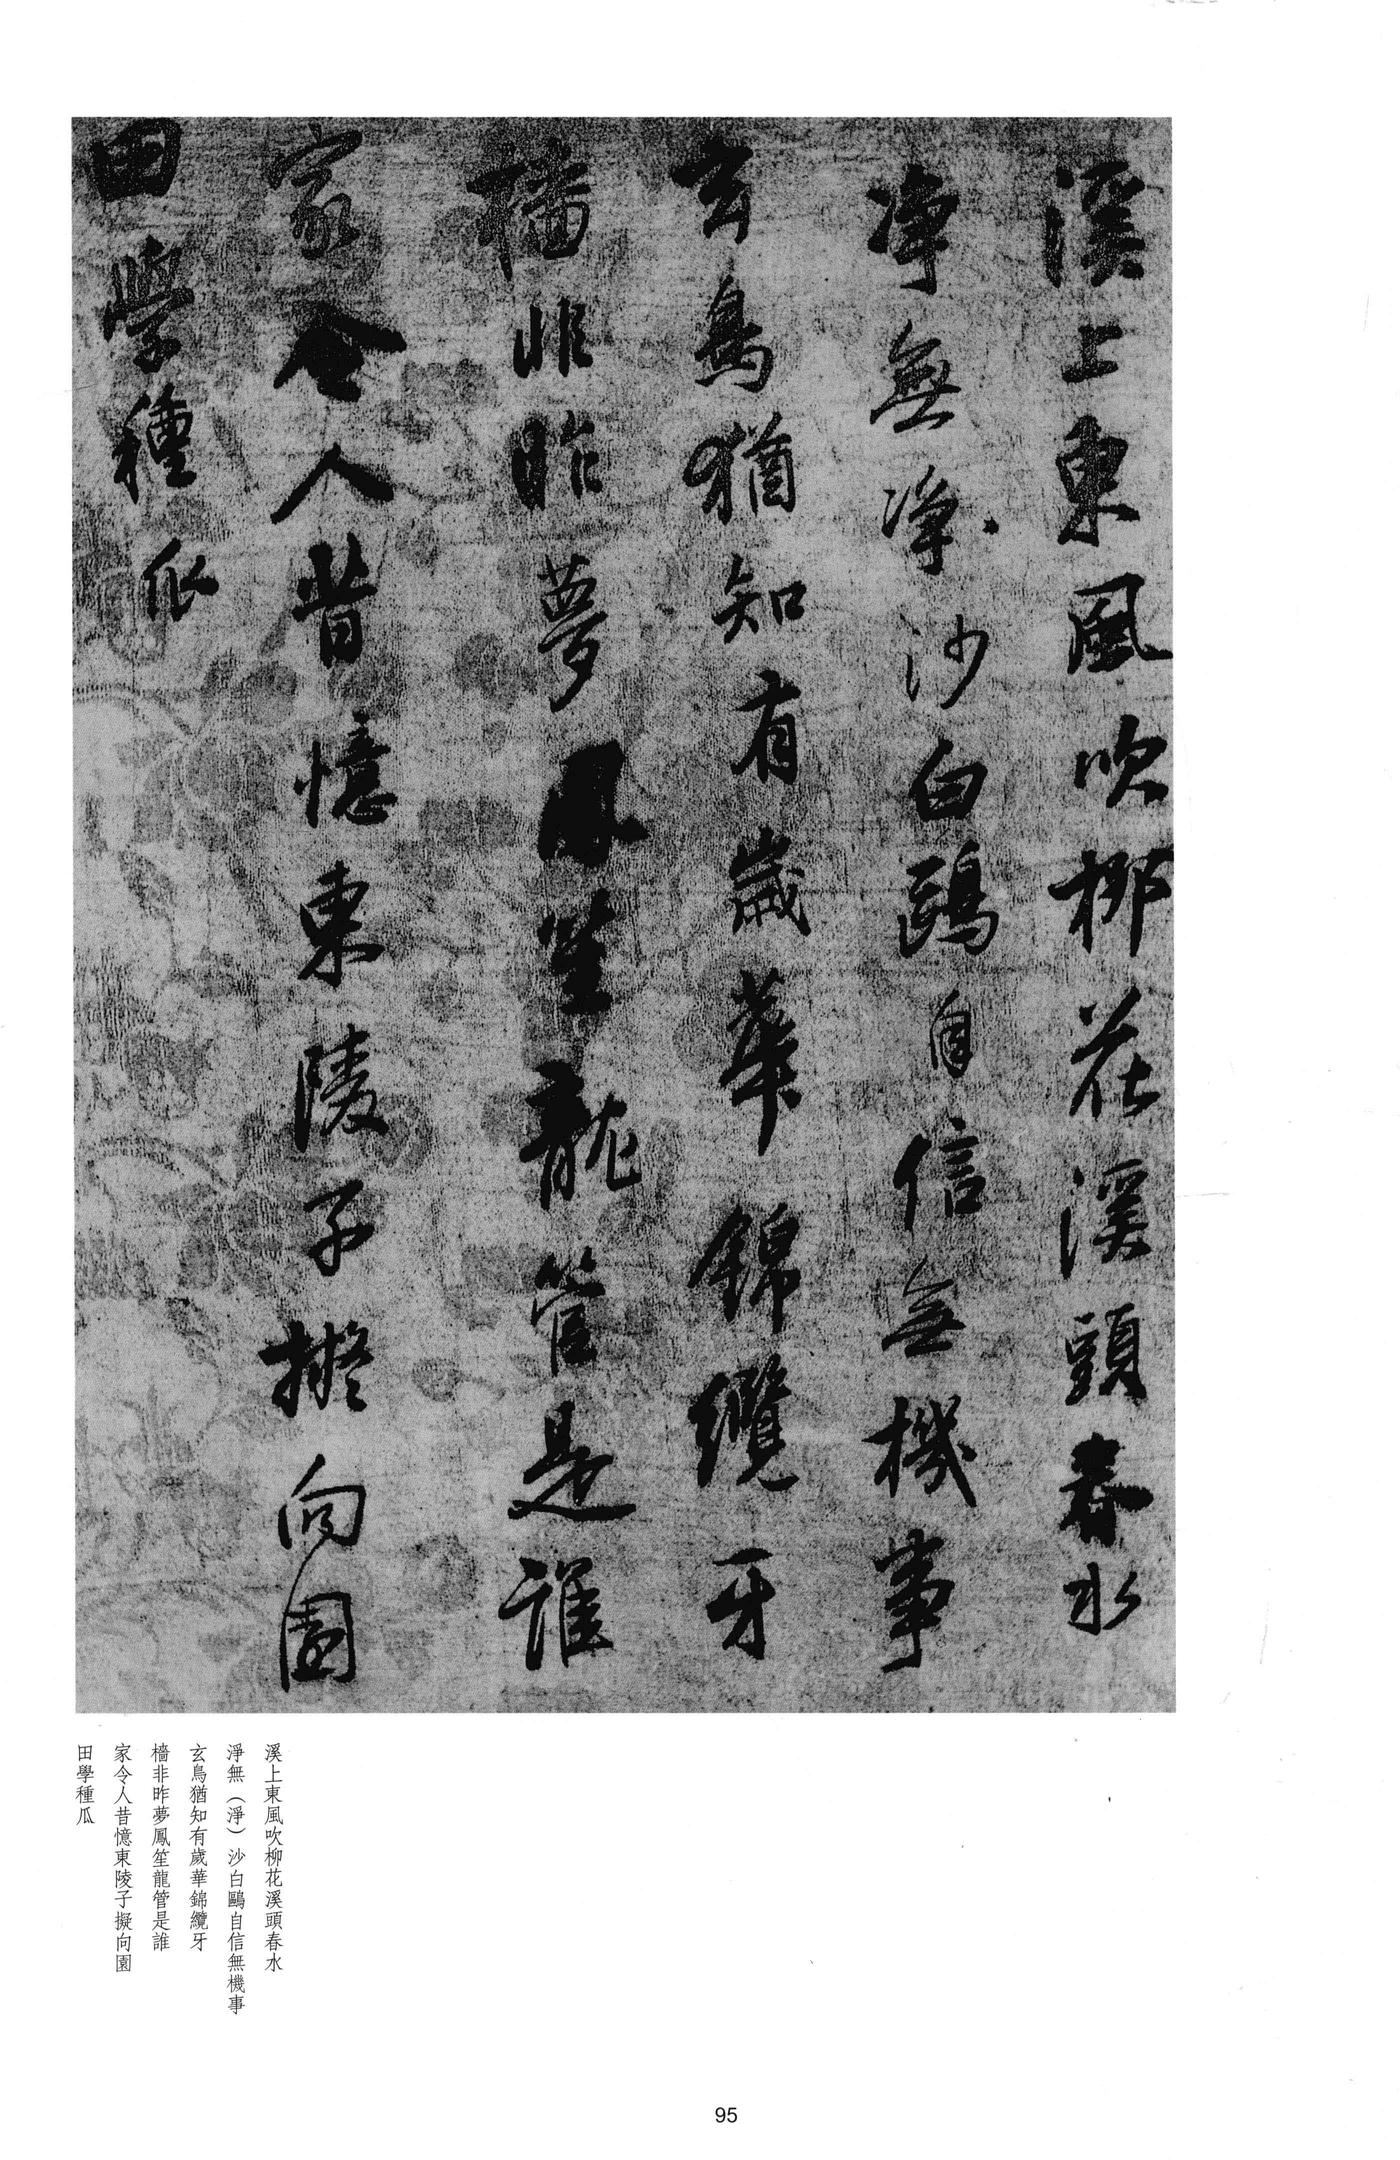 溪上東風吹柳花溪頭春水
淨無淨沙白鷗自信無機事
玄鳥猶知有歲華錦纜牙
檣非昨夢鳳笙龍管是誰
家令人昔憶東陵子擬向園
田學種瓜
溪上東風吹柳花溪頭春水
淨無（淨）沙白鷗自信無機事
玄鳥猶知有歲華錦纜牙
檣非昨夢鳳笙龍管是誰
家令人昔憶東陵子擬向園
田學種瓜
95